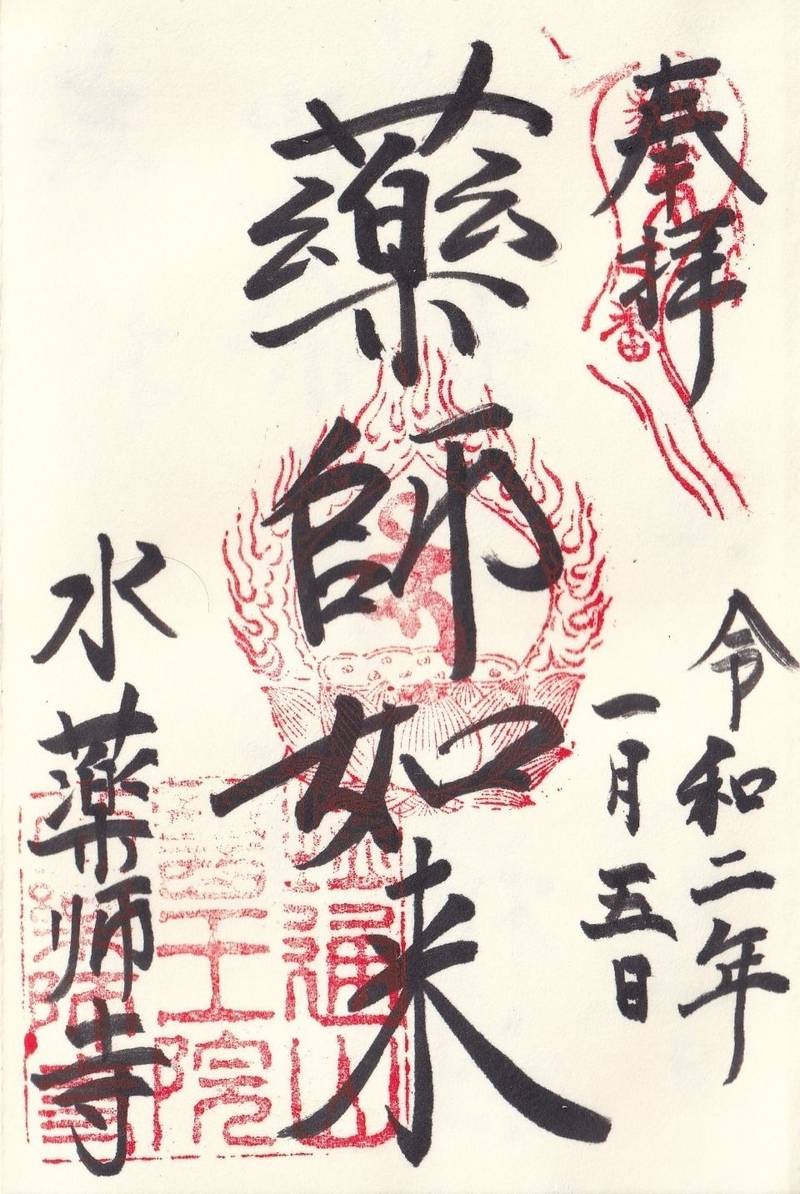 奉拝
令和二年
一月五日
藥師如来
水薬師寺
番
通山
醫王院